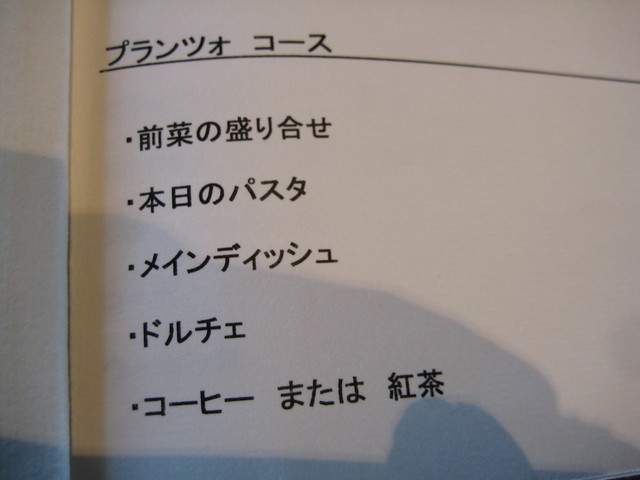 プランツォ コース
・前菜の盛り合せ
・本日のパスタ
・メインディッシュ
・ドルチェ
・コーヒー または 紅茶